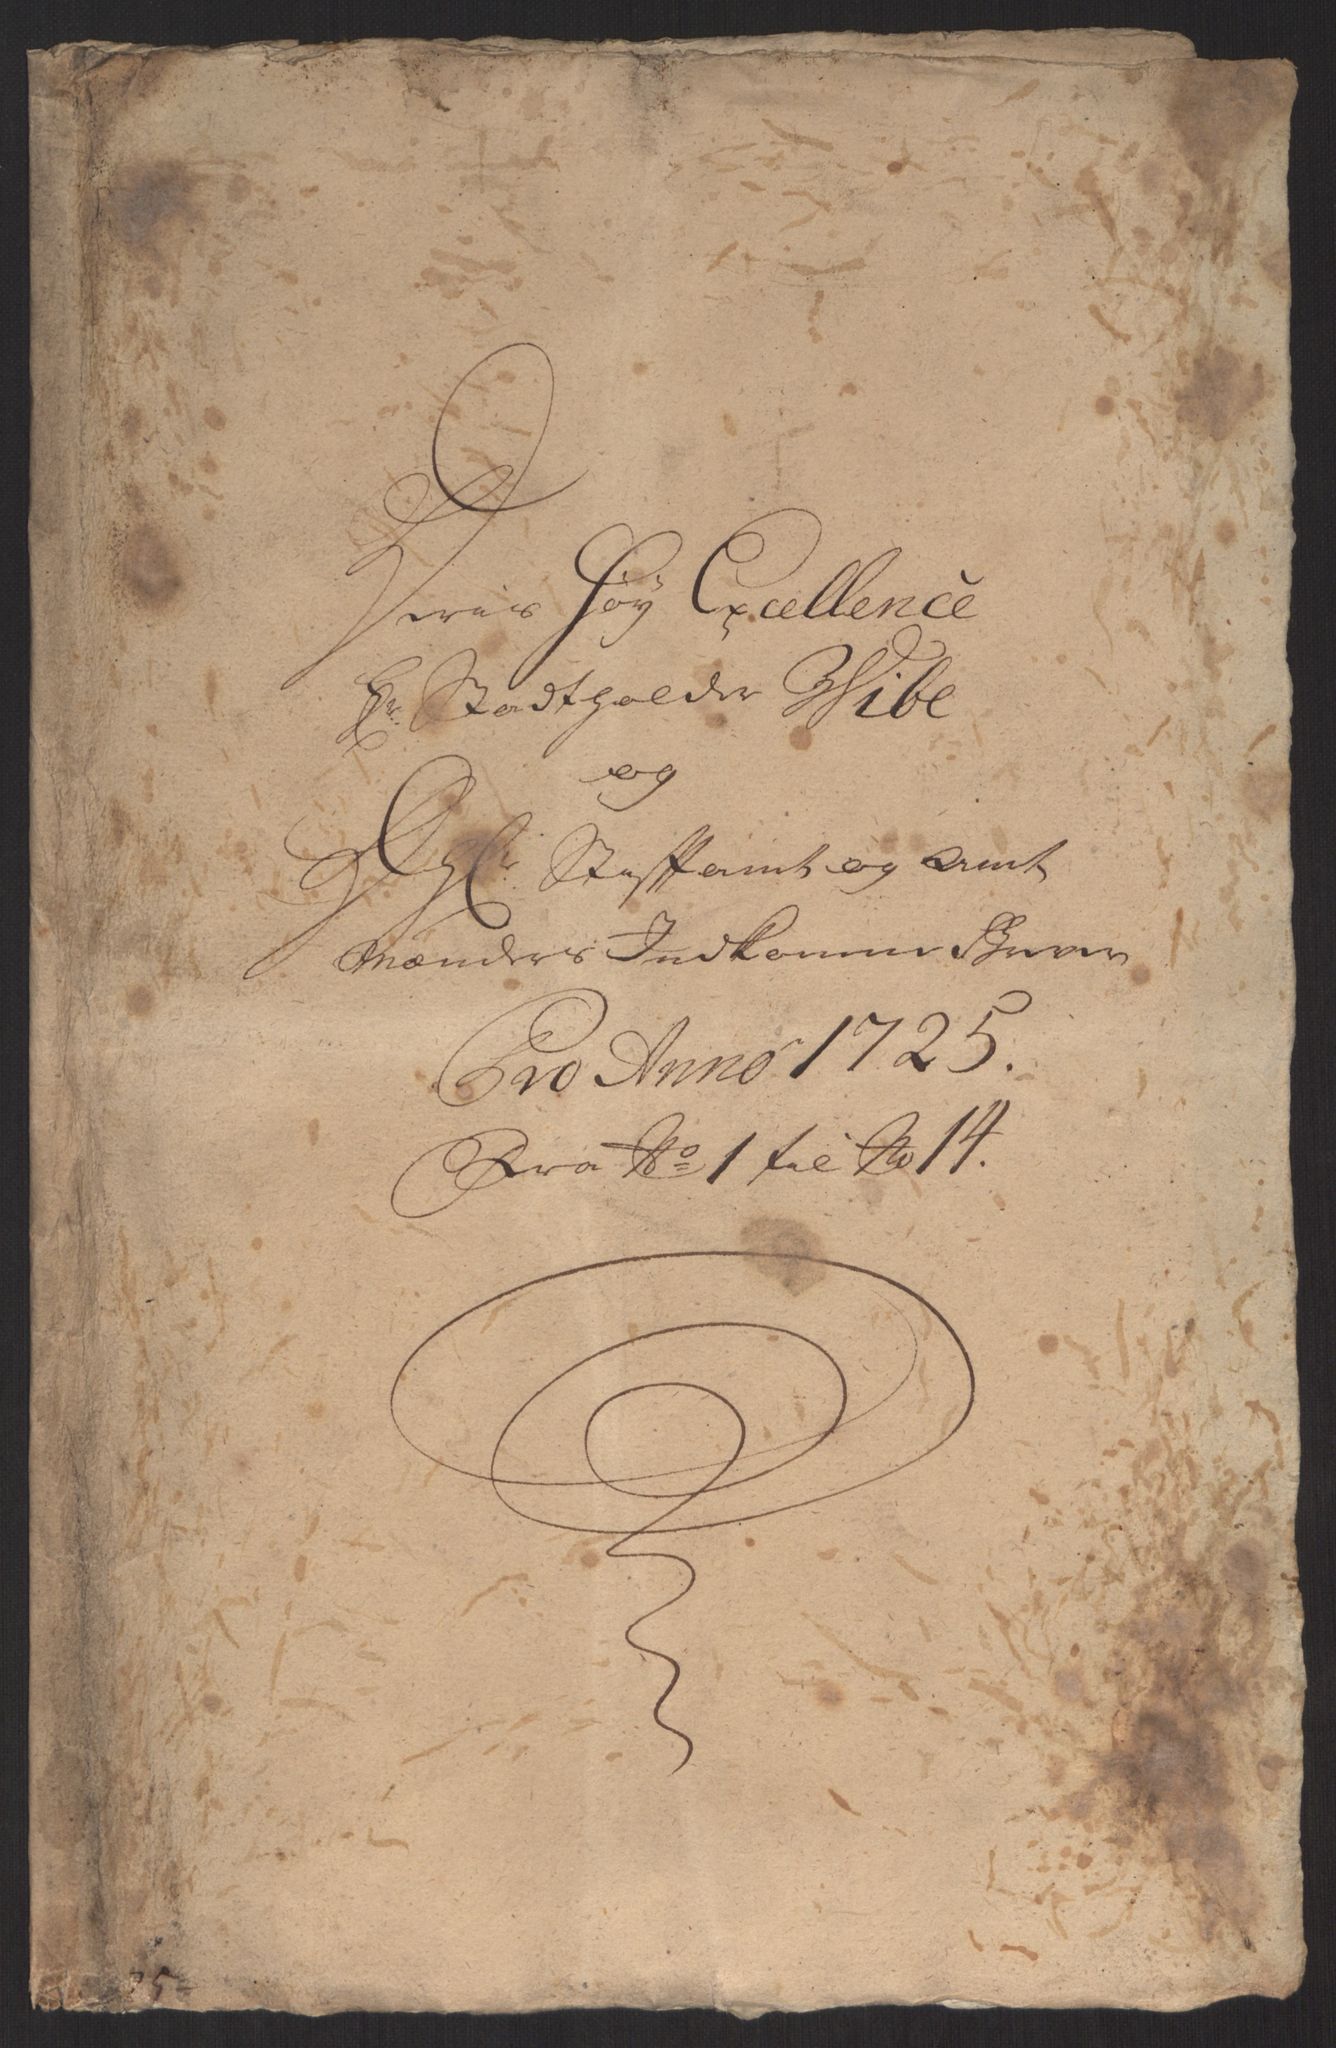 Deris Høy Excellence
Hr. Stadtholder Wibe
og
Stifftamt og Amt
Mænders Indkomne Brever
Pro Anno 1725.
Fra No 1 til No 14.